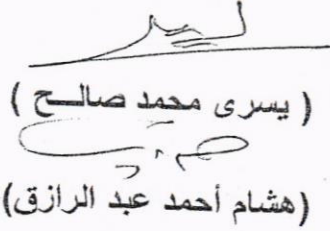 ( يسرى محمد صالــح )
(هشام أحمد عبد الرازق)